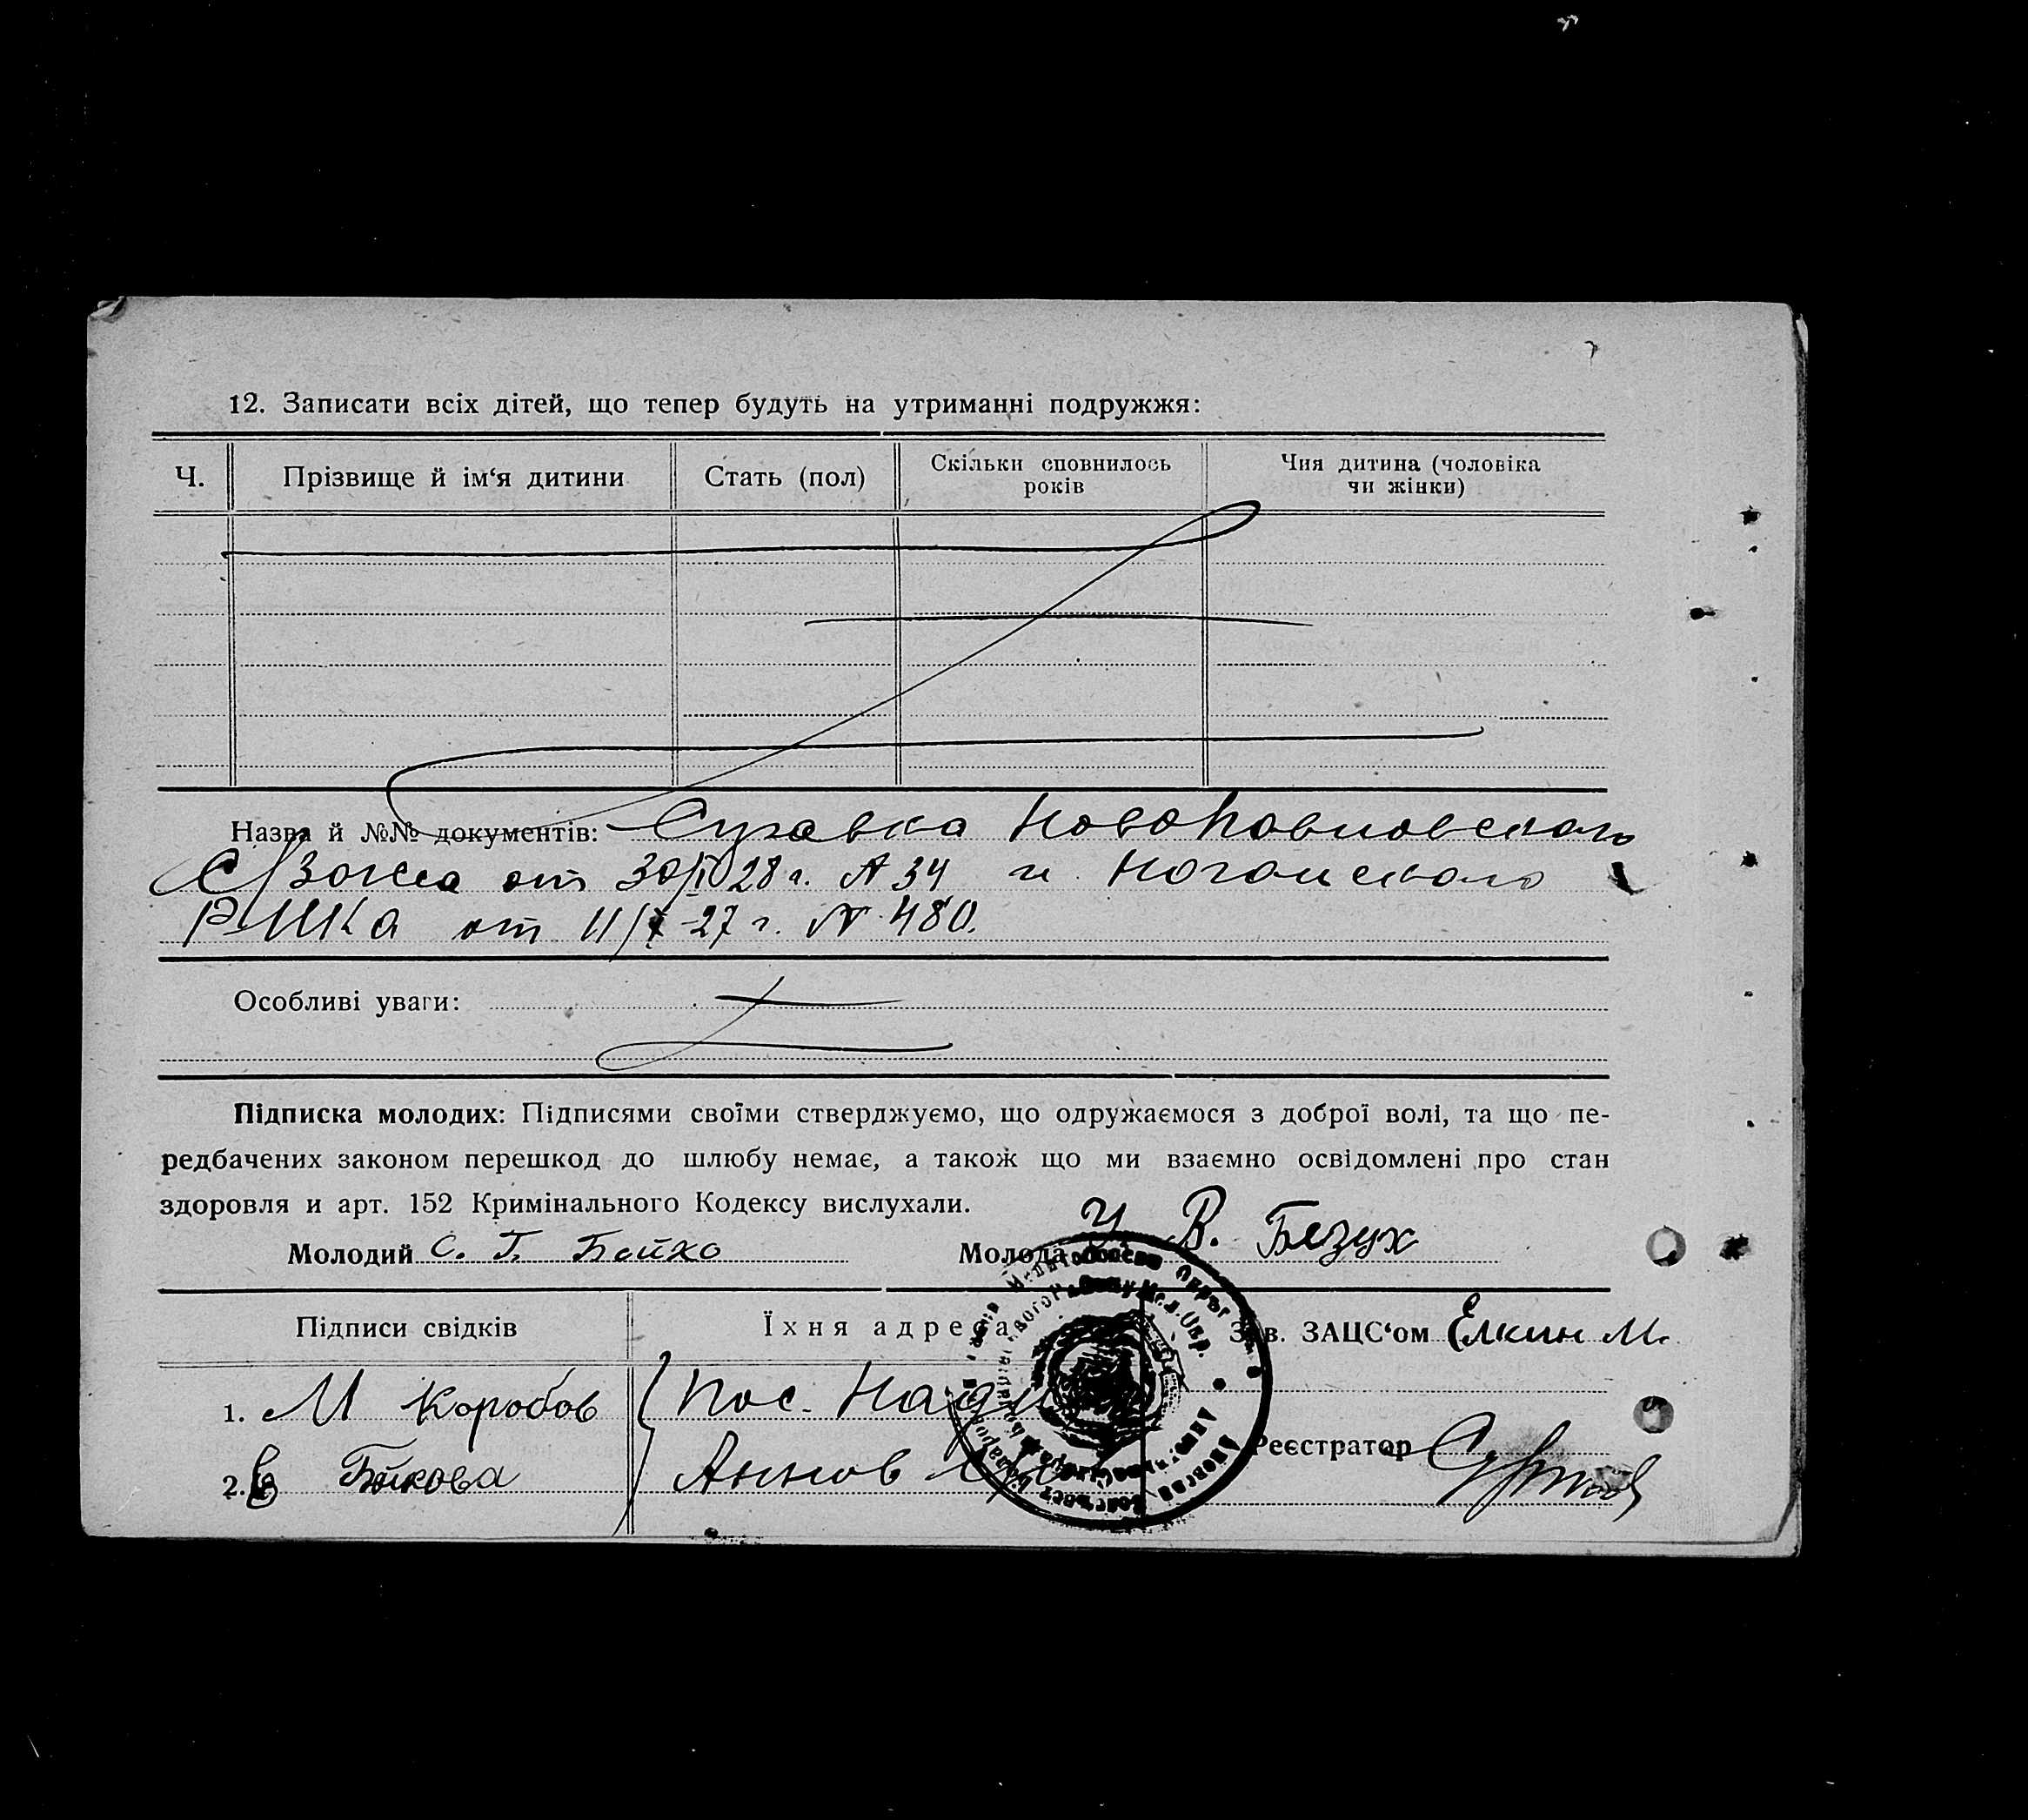 12. Записати всіх дітей, що тепер будуть на утриманні подружжя:
Ч. Прізвище й ім‘я дитини Стать (пол) Скільки сповнилось років Чия дитина (чоловіка чи жінки)
Назва й №№ документів: Справка
от 30/ 28 г. 34 и Ногайского
РИКа от 11/ 27 г. № 480.
Особливі уваги:
Підписка молодих: Підписями своїми стверджуємо, що одружаємося з доброї волі, та що пе-
редбачених законом перешкод до шлюбу немає, а також що ми взаємно освідомлені про стан
здоровля и арт. 152 Кримінального Кодексу вислухали.
Молодий С. Г. Бойко Молода В.
Підписи свідків Їхня адреса Зав. ЗАЦС‘ом Елкин М.
1. М Коробов Пос.
2. Бойкова Реєстратор